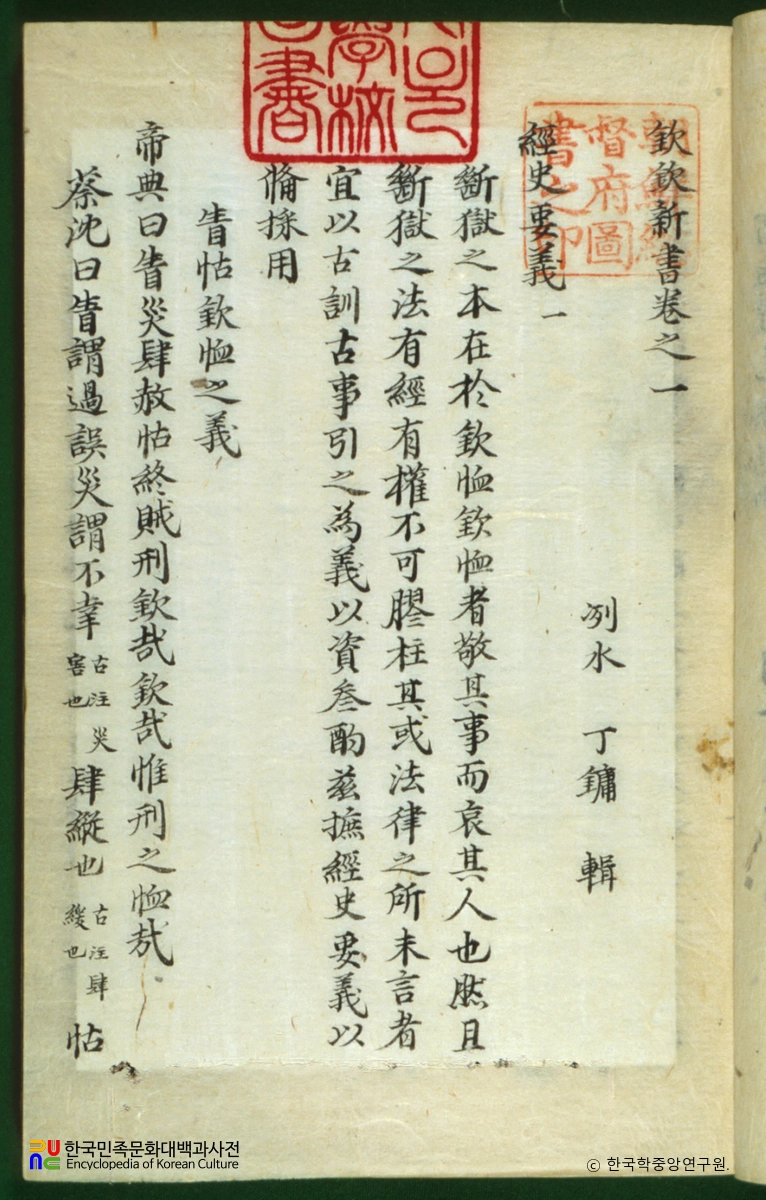 欽欽新書卷之一
洌水 丁鏞 輯
經史要義 一
斷獄之本在於欽恤欽恤者敬其事而哀其人也然且
斷獄之法有經有權不可膠柱其或法律之所未言者
宜以古訓古事引之為義以資叅酌茲摭經史要義以
備採用
眚怙欽恤之義
帝典曰眚災肆赦怙終賊刑欽哉欽哉惟刑之恤哉
蔡沈曰眚謂過誤災謂不幸 古注災害也 肆縱也 古注肆緩也 怙
朝鮮總督府圖書之印
한국민족문화대백과사전
Encyclopedia of Korean Culture
© 한국학중앙연구원.